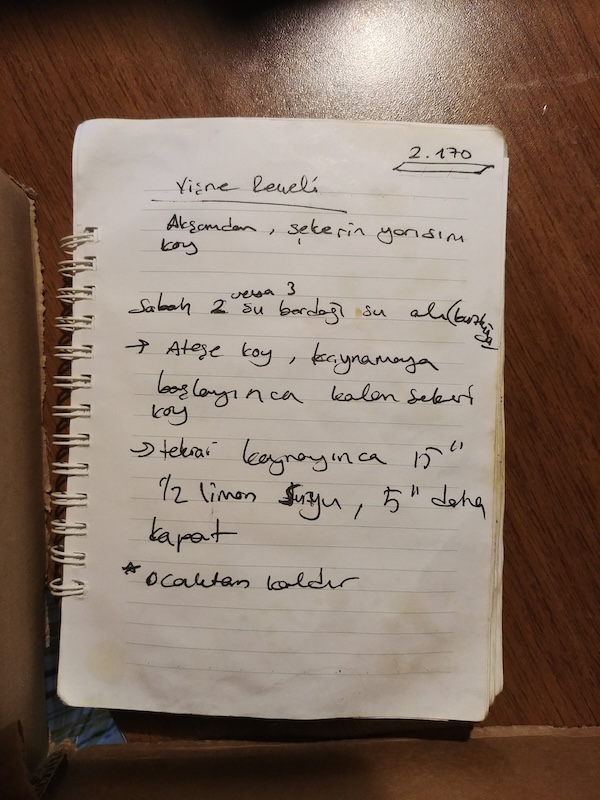 2.170
Vişne Reçeli
Akşamdan, şekerin yarısını
koy
veya 3
Sabah 2 su bardağı su al
→ Ateşe koy, kaynamaya
başlayınca kalan şekeri
koy
→ tekrar kaynayınca 15"
1/2 limon suyu, 5" daha
kapat
* Ocaktan kaldır